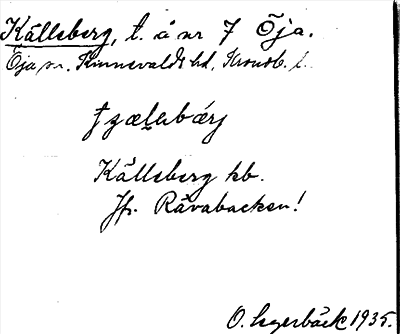 Källsberg, t. å nr 7 Öja.
Öja sn. Kinnevalds hd, Kronob. l.
Källsberg kb.
Jfr. Rävabacken!
O. Lagerbäck 1935.